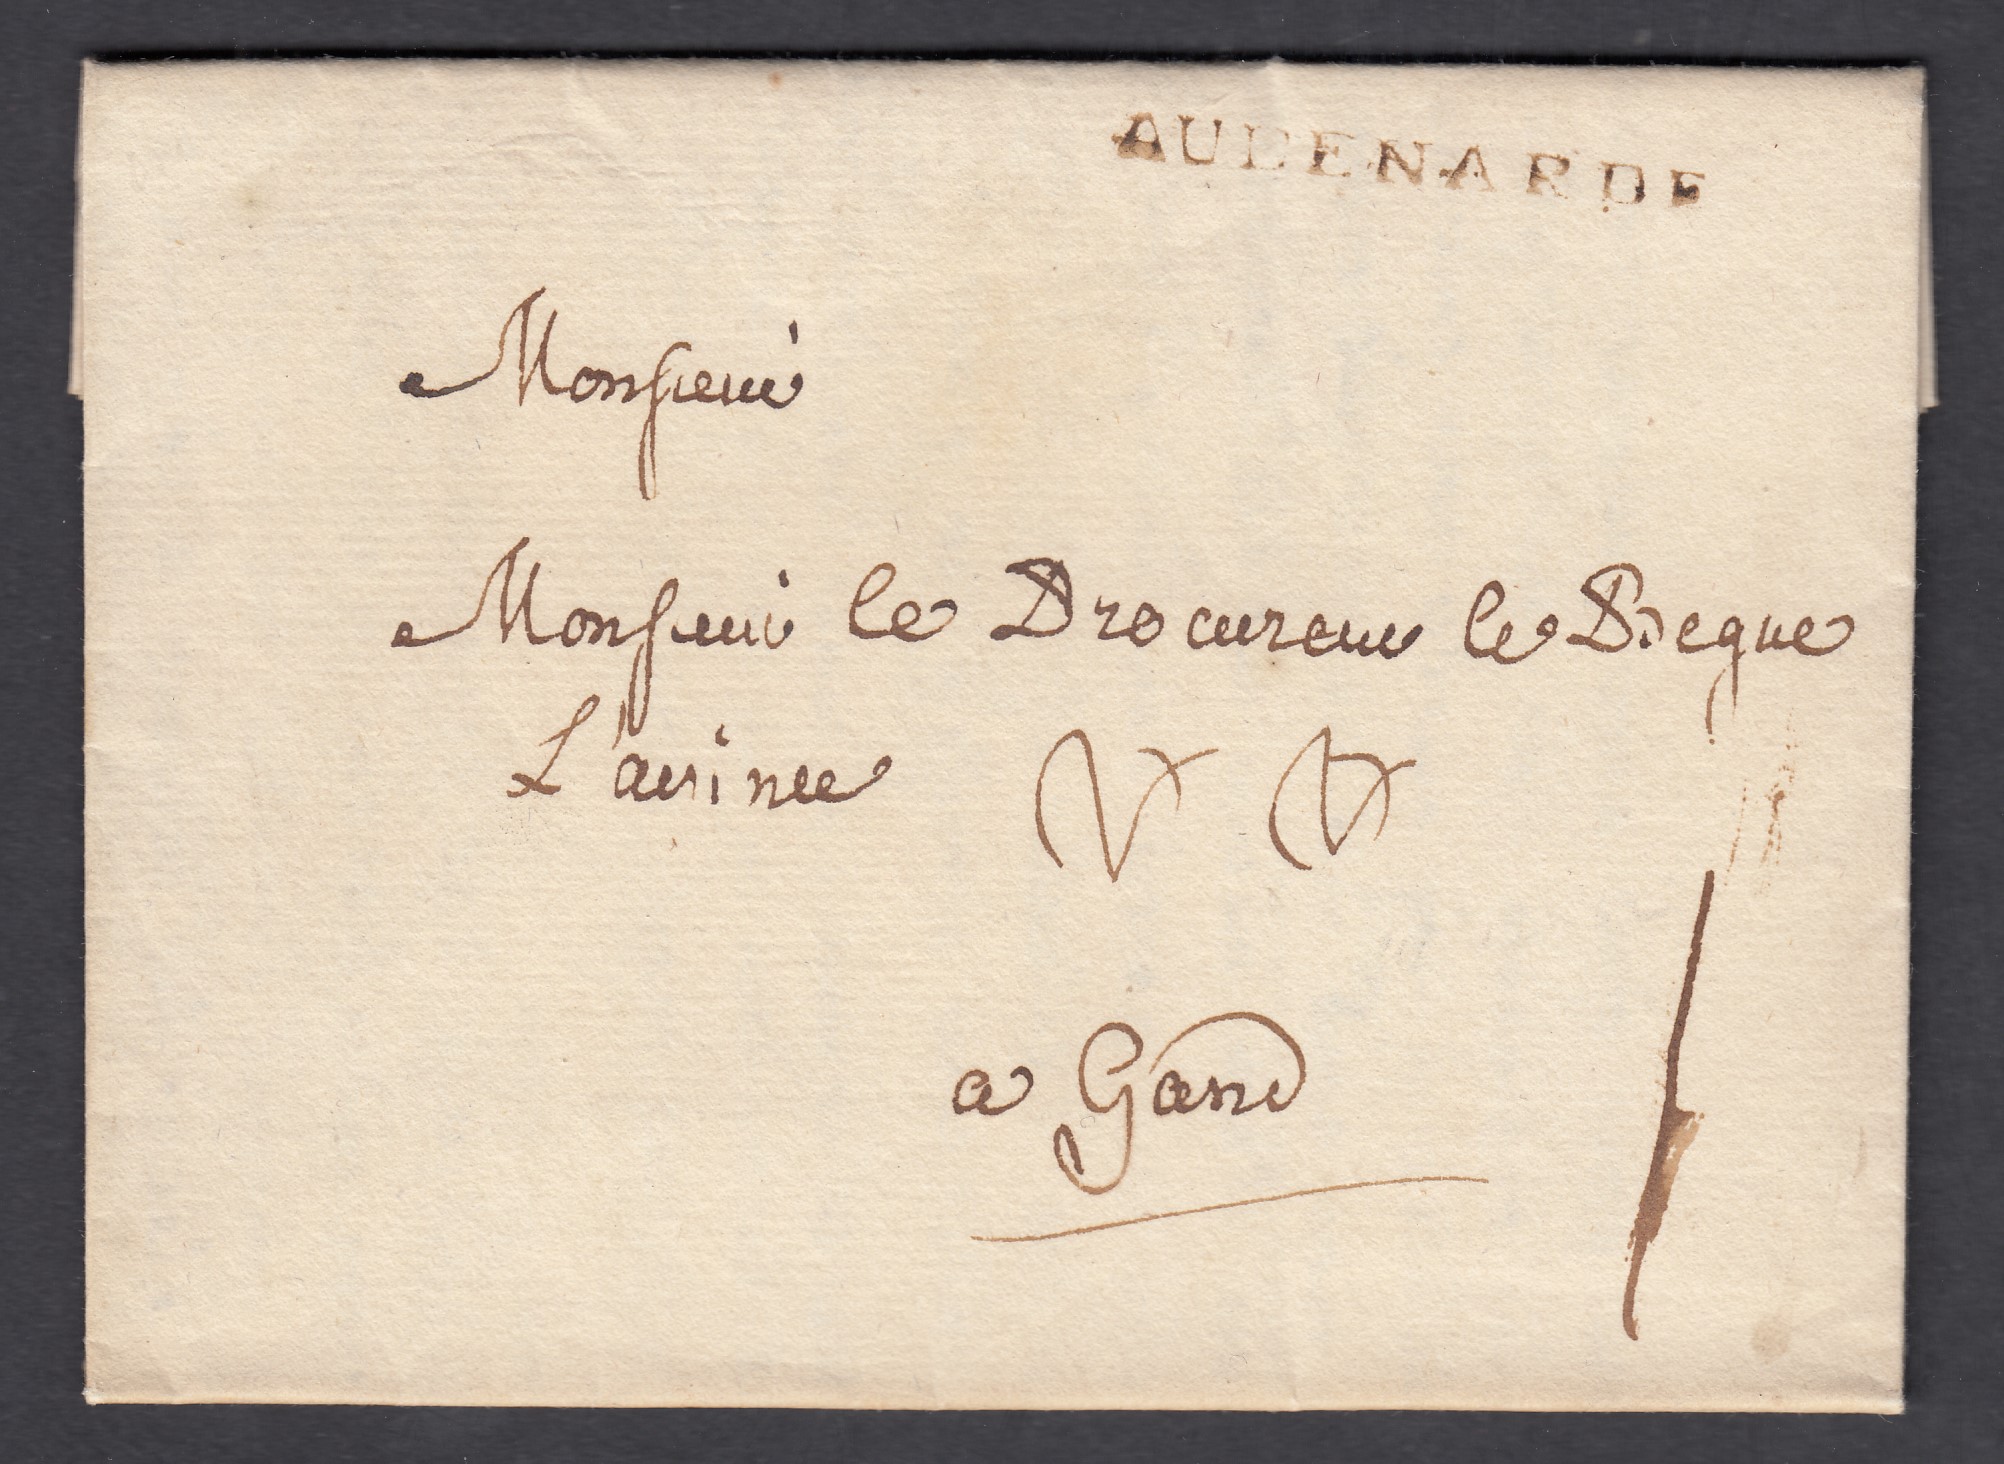 AUDENARDE
Monsieur
Monsieur le Procureur le Begue
L'ainee
a Gand